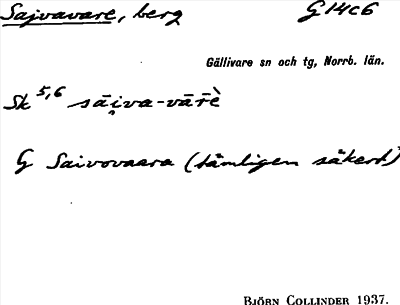 Sajvavare, berg G 14c6
Gällivare sn och tg, Norrb. län.
Sk 5,6 sāi̯va-vārè
G Saivovaara (tämligen säkert)
BJÖRN COLLINDER 1937.